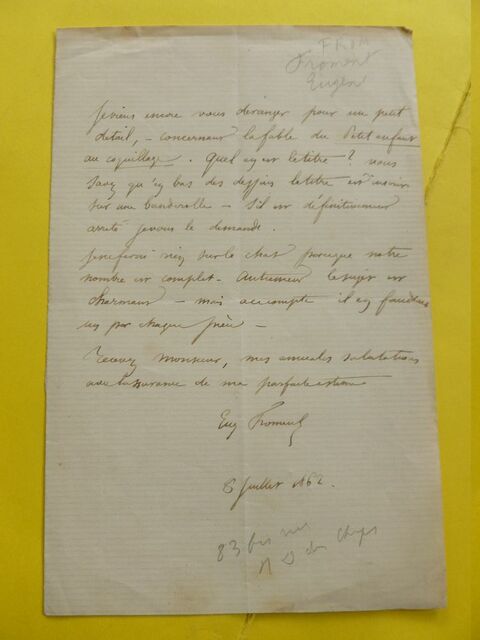 FROM
Froment
Eugène
Je viens encore vous déranger pour un petit
détail, - concernant la fable du Petit enfant
au coquillage. Quel en est le titre? vous
savez qu'en bas des dessins le titre est
sur une banderolle - S'il est définitivement
arrêté je vous le demande.
Je ne ferai rien sur le chat puisque notre
nombre est complet. Autrement le sujet est
charmant - mais à ce compte il en faudrait
un par chaque
Recevez Monsieur, mes amicales salutations
avec l'assurance de ma parfaite estime
Eug Froment
8 Juillet 1862.
83 bis rue
N D des Champs